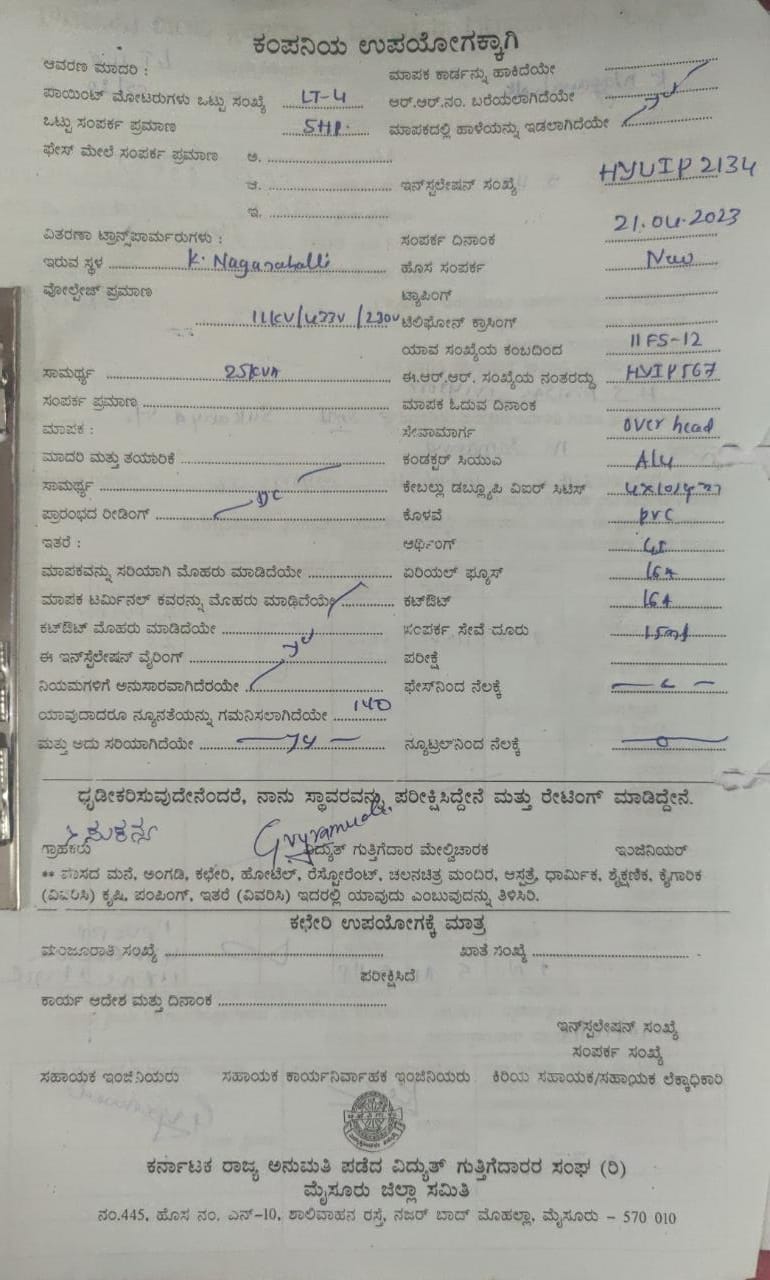 ಕಂಪನಿಯ ಉಪಯೋಗಕ್ಕಾಗಿ
ಆವರಣ ಮಾದರಿ : ಮಾಪಕ ಕಾರ್ಡನ್ನು ಹಾಕಿದೆಯೇ
ಪಾಯಿಂಟ್ ಮೋಟರುಗಳು ಒಟ್ಟು ಸಂಖ್ಯೆ LT-4 ಆರ್.ಆರ್.ನಂ. ಬರೆಯಲಾಗಿದೆಯೇ
ಒಟ್ಟು ಸಂಪರ್ಕ ಪ್ರಮಾಣ 5HP. ಮಾಪಕದಲ್ಲಿ ಹಾಳೆಯನ್ನು ಇಡಲಾಗಿದೆಯೇ
ಫೇಸ್ ಮೇಲೆ ಸಂಪರ್ಕ ಪ್ರಮಾಣ ಅ.
ಆ. ಇನ್‌ಸ್ಟಲೇಷನ್ ಸಂಖ್ಯೆ HYUIP2134
ಇ.
ವಿತರಣಾ ಟ್ರಾನ್ಸ್‌ಪಾರ್ಮರುಗಳು : ಸಂಪರ್ಕ ದಿನಾಂಕ 21.04.2023
ಇರುವ ಸ್ಥಳ K. Naganahalli ಹೊಸ ಸಂಪರ್ಕ New
ವೋಲ್ಟೇಜ್ ಪ್ರಮಾಣ ಟ್ಯಾಪಿಂಗ್
11KV/433V/230V ಟೆಲಿಫೋನ್ ಕ್ರಾಸಿಂಗ್
ಯಾವ ಸಂಖ್ಯೆಯ ಕಂಬದಿಂದ 11FS-12
ಸಾಮರ್ಥ್ಯ 25KVA ಈ.ಆರ್.ಆರ್. ಸಂಖ್ಯೆಯ ನಂತರದ್ದು HYIP567
ಸಂಪರ್ಕ ಪ್ರಮಾಣ ಮಾಪಕ ಓದುವ ದಿನಾಂಕ
ಮಾಪಕ : ಸೇವಾಮಾರ್ಗ over head
ಮಾದರಿ ಮತ್ತು ತಯಾರಿಕೆ ಕಂಡಕ್ಟರ್ ಸಿಯುಎ Alu
ಸಾಮರ್ಥ್ಯ ಕೇಬಲ್ಲು ಡಬ್ಲ್ಯೂಪಿ ವಿಐರ್ ಸಿಟಿಸ್
ಪ್ರಾರಂಭದ ರೀಡಿಂಗ್ DC ಕೊಳವೆ PVC
ಇತರೆ : ಅರ್ಥಿಂಗ್ GI
ಮಾಪಕವನ್ನು ಸರಿಯಾಗಿ ಮೊಹರು ಮಾಡಿದೆಯೇ ಏರಿಯಲ್ ಫ್ಯೂಸ್ 16A
ಮಾಪಕ ಟರ್ಮಿನಲ್ ಕವರನ್ನು ಮೊಹರು ಮಾಡಿದೆಯೇ ಕಟ್‌ಔಟ್ 16A
ಕಟ್‌ಔಟ್ ಮೊಹರು ಮಾಡಿದೆಯೇ ಸಂಪರ್ಕ ಸೇವೆ ದೂರು
ಈ ಇನ್‌ಸ್ಟಲೇಷನ್ ವೈರಿಂಗ್ ಪರೀಕ್ಷೆ
ನಿಯಮಗಳಿಗೆ ಅನುಸಾರವಾಗಿದೆರಯೇ ಫೇಸ್‌ನಿಂದ ನೆಲಕ್ಕೆ
ಯಾವುದಾದರೂ ನ್ಯೂನತೆಯನ್ನು ಗಮನಿಸಲಾಗಿದೆಯೇ
ಮತ್ತು ಅದು ಸರಿಯಾಗಿದೆಯೇ ನ್ಯೂಟ್ರಲ್‌ನಿಂದ ನೆಲಕ್ಕೆ 0
ಧೃಡೀಕರಿಸುವುದೇನೆಂದರೆ, ನಾನು ಸ್ಥಾವರವನ್ನು ಪರೀಕ್ಷಿಸಿದ್ದೇನೆ ಮತ್ತು ರೇಟಿಂಗ್ ಮಾಡಿದ್ದೇನೆ.
ಗ್ರಾಹಕರು ವಿದ್ಯುತ್ ಗುತ್ತಿಗೆದಾರ ಮೇಲ್ವಿಚಾರಕ ಇಂಜಿನಿಯರ್
** ವಾಸದ ಮನೆ, ಅಂಗಡಿ, ಕಛೇರಿ, ಹೋಟೆಲ್, ರೆಸ್ಟೋರೆಂಟ್, ಚಲನಚಿತ್ರ ಮಂದಿರ, ಆಸ್ಪತ್ರೆ, ಧಾರ್ಮಿಕ, ಶೈಕ್ಷಣಿಕ, ಕೈಗಾರಿಕ
(ವಿವರಿಸಿ) ಕೃಷಿ, ಪಂಪಿಂಗ್, ಇತರೆ (ವಿವರಿಸಿ) ಇದರಲ್ಲಿ ಯಾವುದು ಎಂಬುವುದನ್ನು ತಿಳಿಸಿರಿ.
ಕಛೇರಿ ಉಪಯೋಗಕ್ಕೆ ಮಾತ್ರ
ಮಂಜೂರಾತಿ ಸಂಖ್ಯೆ ಖಾತೆ ಸಂಖ್ಯೆ
ಪರೀಕ್ಷಿಸಿದೆ
ಕಾರ್ಯ ಆದೇಶ ಮತ್ತು ದಿನಾಂಕ
ಇನ್‌ಸ್ಟಲೇಷನ್ ಸಂಖ್ಯೆ
ಸಂಪರ್ಕ ಸಂಖ್ಯೆ
ಸಹಾಯಕ ಇಂಜಿನಿಯರು ಸಹಾಯಕ ಕಾರ್ಯನಿರ್ವಾಹಕ ಇಂಜಿನಿಯರು ಕಿರಿಯ ಸಹಾಯಕ/ಸಹಾಯಕ ಲೆಕ್ಕಾಧಿಕಾರಿ
ಕರ್ನಾಟಕ ರಾಜ್ಯ ಅನುಮತಿ ಪಡೆದ ವಿದ್ಯುತ್ ಗುತ್ತಿಗೆದಾರರ ಸಂಘ (ರಿ)
ಮೈಸೂರು ಜಿಲ್ಲಾ ಸಮಿತಿ
ನಂ.445, ಹೊಸ ನಂ. ಎನ್-10, ಶಾಲಿವಾಹನ ರಸ್ತೆ, ನಜರ್ ಬಾದ್ ಮೊಹಲ್ಲಾ, ಮೈಸೂರು - 570 010